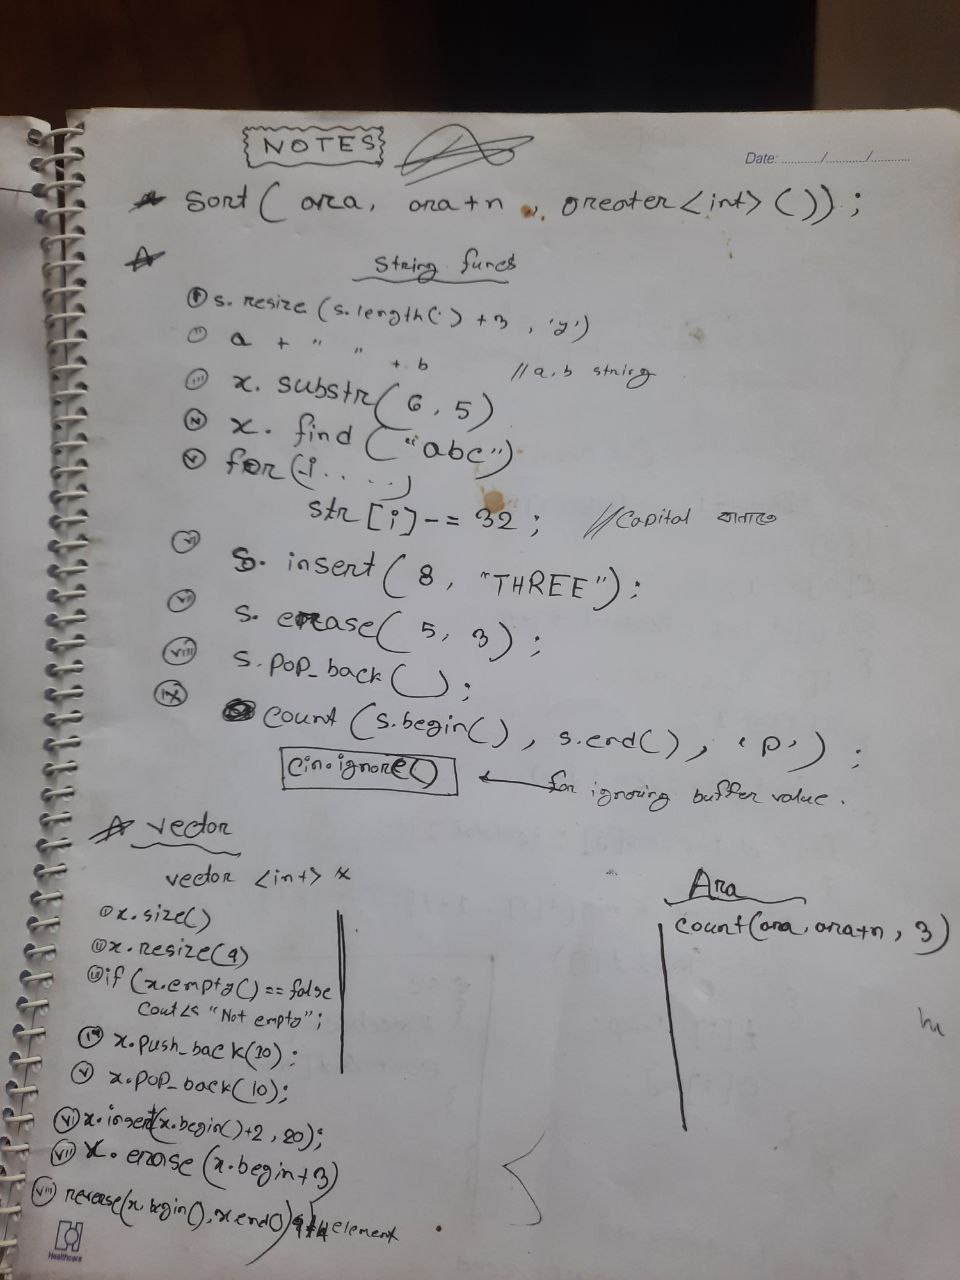 NOTES
Date: ........./........./.........
sort( ara, ara+n , greater<int>());
String funcs
i s. resize (s.length() +3 , 'y')
ii a + " " + b //a,b string
iii x. substr(6, 5)
iv x. find ("abc")
v for(i.....)
str[i]-= 32; //Capital বানাতে
vi s. insert(8, "THREE");
vii s. erase(5, 3);
viii s.pop_back();
ix count (s.begin(), s.end(), 'p');
cin.ignore() ← for ignoring buffer value.
vector
vector <int> x
i x.size()
ii x.resize(9)
iii if (x.empty() == false
cout<< "Not empty";
iv x.push_back(10);
v x.pop_back(10);
vi x.insert(x.begin()+2, 20);
vii x. erase (x.begin+3)
viii reverse(x.begin(), x.end()) element
Ara
count(ara, ara+n, 3)
Healthcare